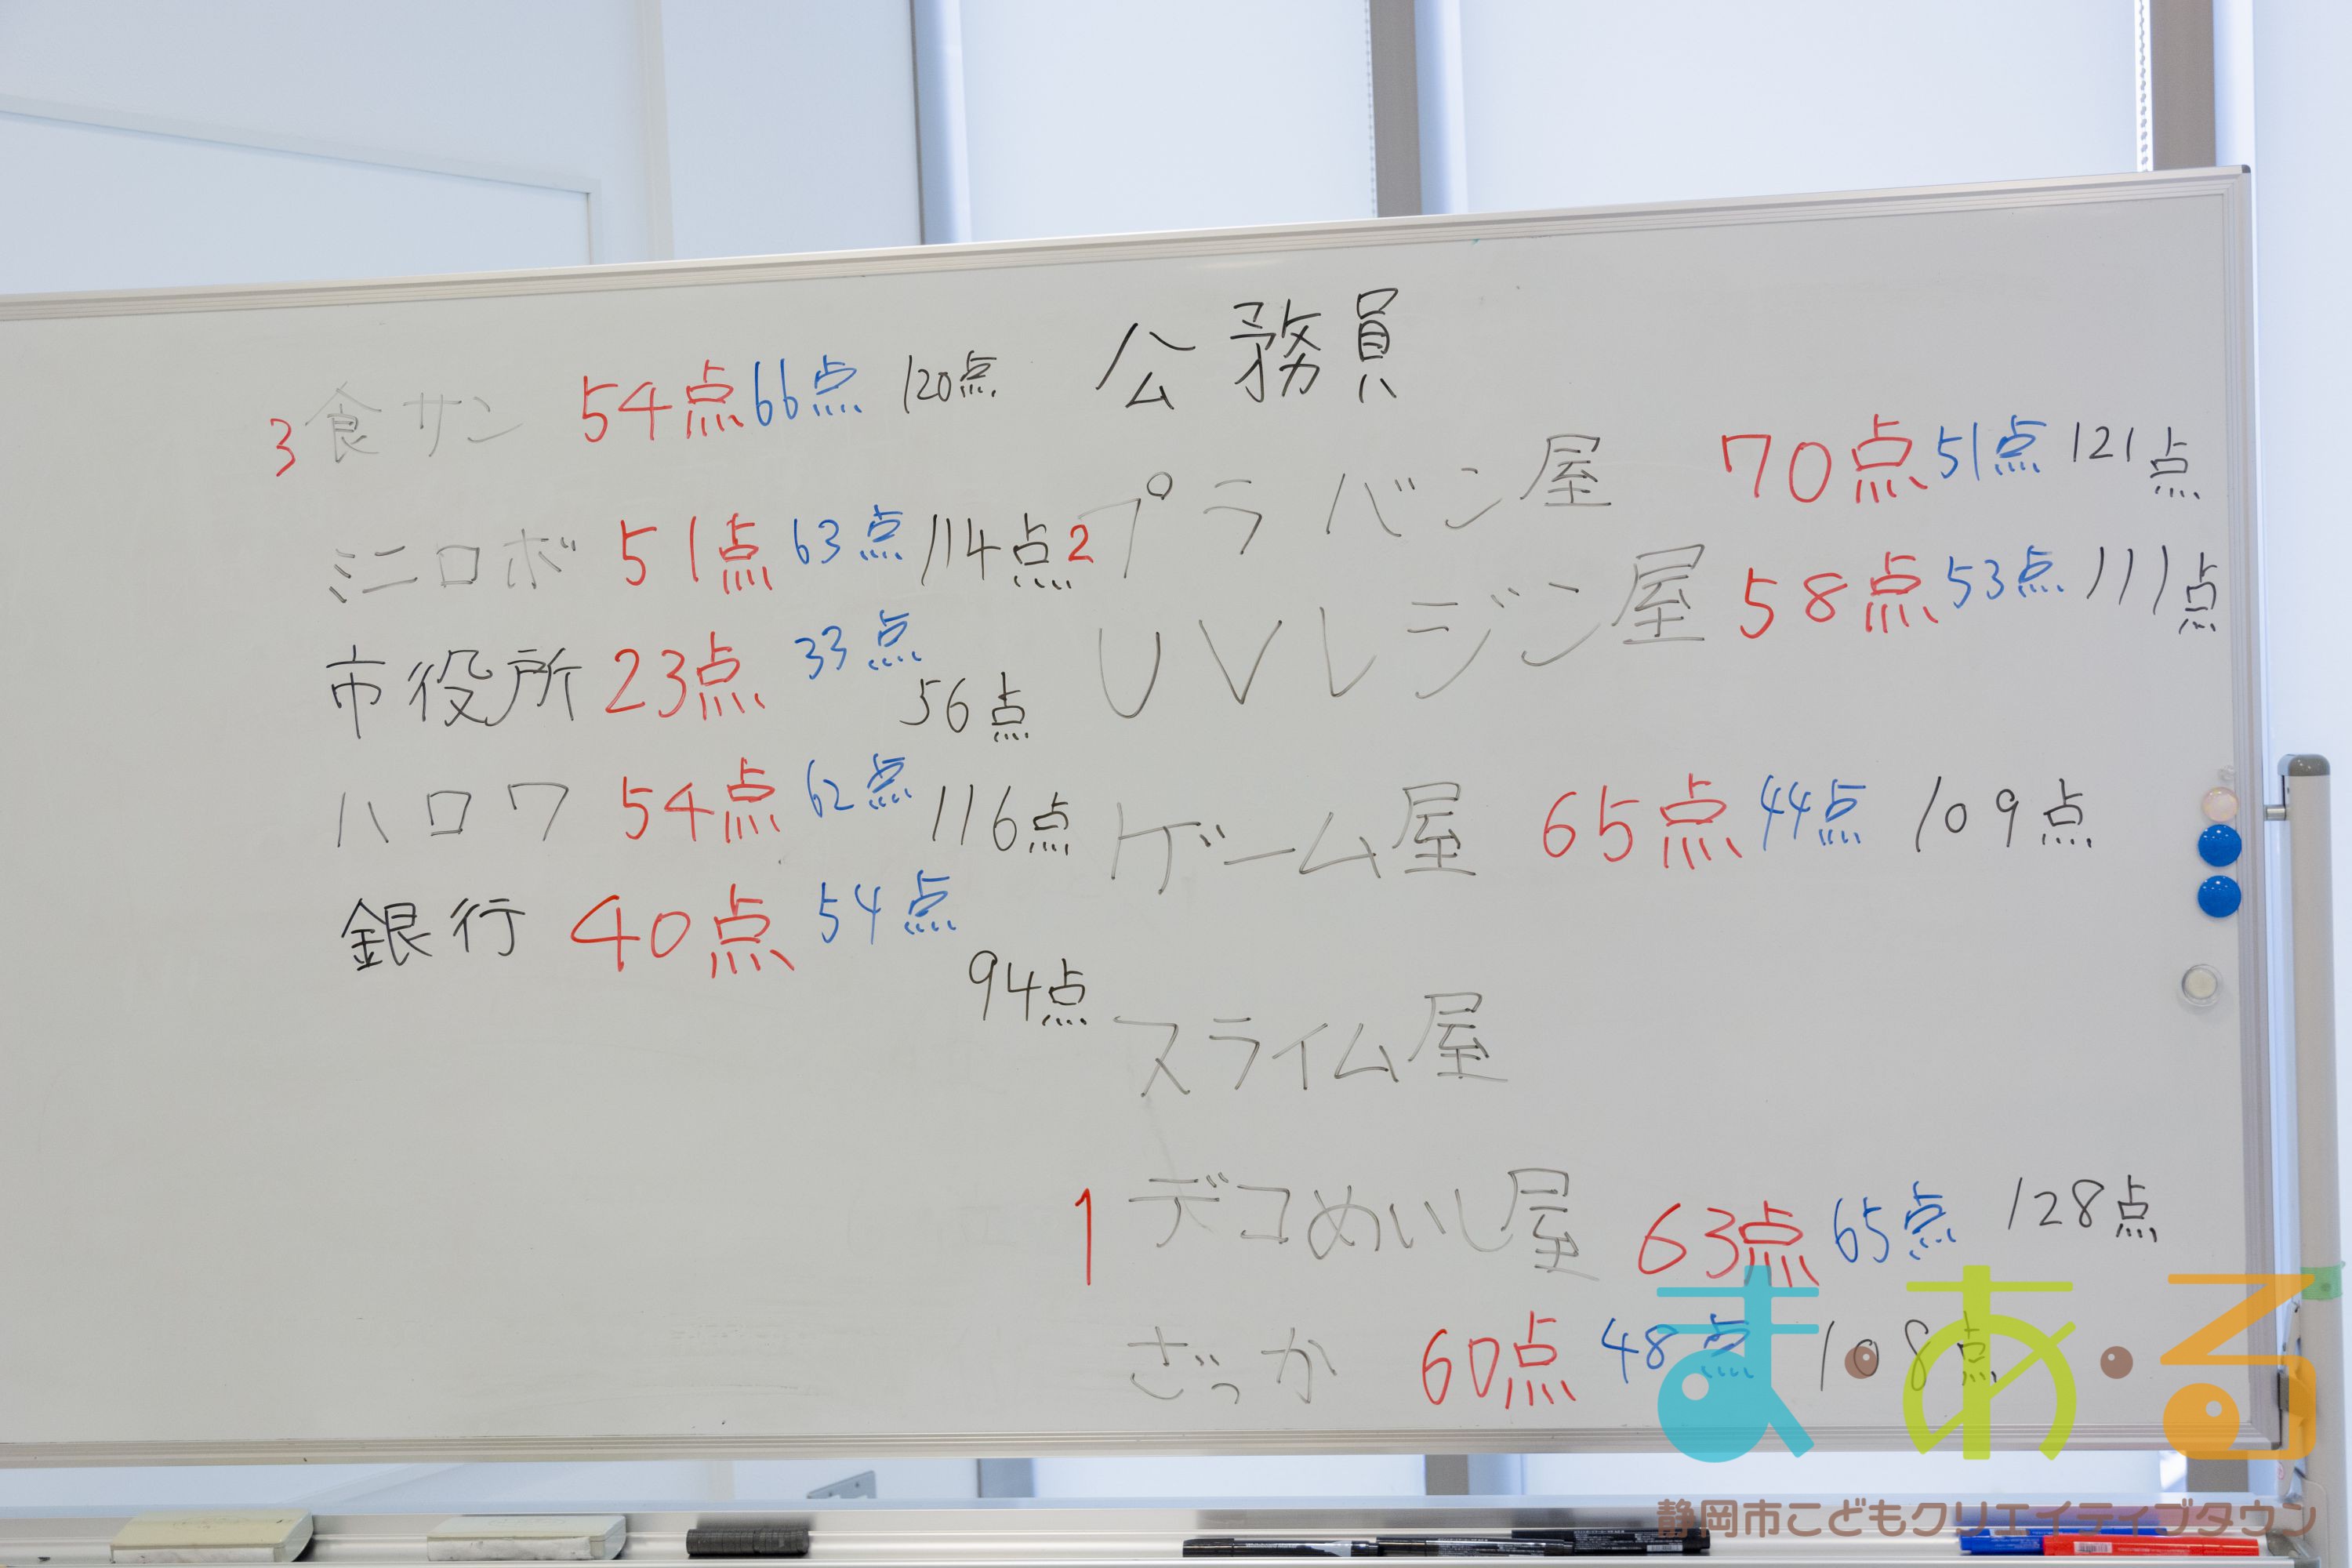 公務員
3 食サン 54点 66点 120点
ミニロボ 51点 63点 114点
市役所 23点 33点 56点
ハロワ 54点 62点 116点
銀行 40点 54点 94点
2 プラバン屋 70点 51点 121点
UVレジン屋 58点 53点 111点
ゲーム屋 65点 44点 109点
スライム屋
1 デコめいし屋 63点 65点 128点
ざっか 60点 48点 108点
ま・あ・る
静岡市こどもクリエイティブタウン